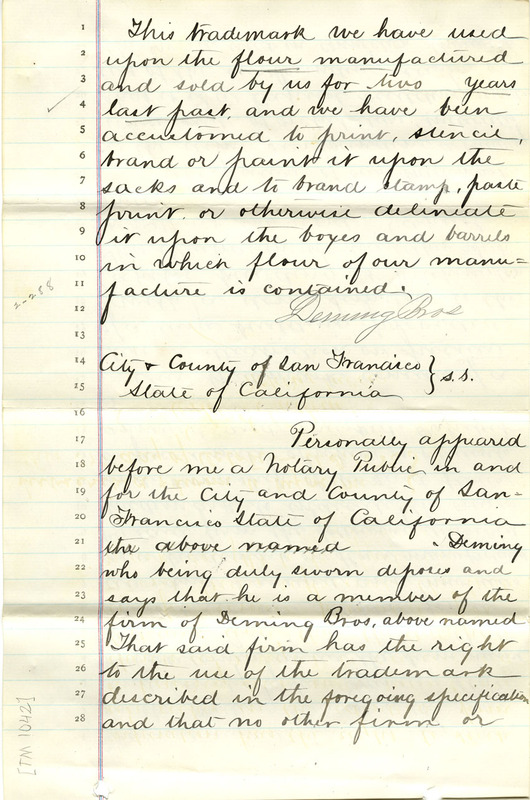 1 This trademark we have used
2 upon the flour manufactured
3 and sold by us for two years
4 last past, and we have been
5 accustomed to print, stencil,
6 brand or paint it upon the
7 sacks and to brand stamp, paste
8 print, or otherwise delineate
9 it upon the boxes and barrels
10 in which flour of our manu=
11 facture is contained.
12 Deming Bros
13
14 City & County of San Francisco } s.s.
15 State of California
16
17 Personally appeared
18 before me a Notary Public in and
19 for the City and County of San-
20 Francisco State of California
21 the above named Deming
22 who being duly sworn deposes and
23 says that he is a member of the
24 firm of Deming Bros, above named
25 That said firm has the right
26 to the use of the trademark
27 described in the foregoing specification
28 and that no other firm or
2-258
[TM 1042]